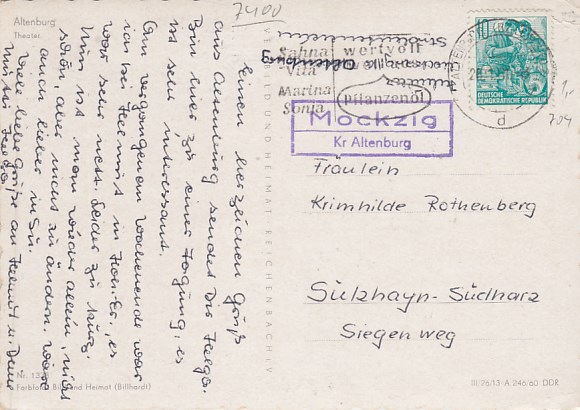 7400
Altenburg
Theater
Sahna
Vita
Marina
Sonja
wertvoll
Pflanzenöl
10
DEUTSCHE
DEMOKRATISCHE REPUBLIK
d
1,-
704
Mockzig
Kr Altenburg
Einen herzlichen Gruß
aus Altenburg sendet Dir Helga.
Bin hier zu einer Tagung, es
ist sehr interessant.
Am vergangenen Wochenende war
ich bei Helmut in
war sehr nett. Leider zu kurz.
Nun ist man wieder allein, nicht
schön, aber nicht zu ändern. Wäre
auch lieber in Sü.
Viele liebe Grüße an Helmut u. Deine
Mutti
Fräulein
Krimhilde Rothenberg
Sülzhayn-Südharz
Siegenweg
BILD UND HEIMAT REICHENBACH I. V.
Nr. 13
Farbfoto: Bild und Heimat (Billhardt)
III/26/13 A 246/60 DDR